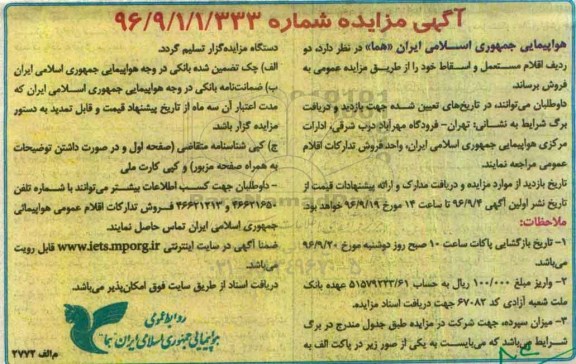 آگهی مزایده شماره ۹۶/۹/۱/۱/۳۳۳
هواپیمایی جمهوری اسلامی ایران «هما» در نظر دارد، دو
ردیف اقلام مستعمل و اسقاط خود را از طریق مزایده عمومی به
فروش برساند.
داوطلبان می‌توانند، در تاریخ‌های تعیین شده جهت بازدید و دریافت
برگ شرایط به نشانی: تهران- فرودگاه مهرآباد درب شرقی، ادارات
مرکزی هواپیمایی جمهوری اسلامی ایران، واحد فروش تدارکات اقلام
عمومی مراجعه نمایند.
تاریخ بازدید از موارد مزایده و دریافت مدارک و ارائه پیشنهادات قیمت از
تاریخ نشر اولین آگهی ۹۶/۹/۴ تا ساعت ۱۴ مورخ ۹۶/۹/۱۹ خواهد بود
ملاحظات:
۱- تاریخ بازگشایی پاکات ساعت ۱۰ صبح روز دوشنبه مورخ ۹۶/۹/۲۰
می‌باشد.
۲- واریز مبلغ ۱۰۰/۰۰۰ ریال به حساب ۵۱۵۷۹۲۳۳/۶۱ عهده بانک
ملت شعبه آزادی کد ۶۷۰۸۲ جهت دریافت اسناد مزایده.
۳- میزان سپرده، جهت شرکت در مزایده طبق جدول مندرج در برگ
شرایط می‌باشد که می‌بایست به یکی از صور زیر در پاکت الف به
دستگاه مزایده‌گزار تسلیم گردد.
الف) چک تضمین شده بانکی در وجه هواپیمایی جمهوری اسلامی ایران
ب) ضمانت‌نامه بانکی در وجه هواپیمایی جمهوری اسلامی ایران که
مدت اعتبار آن سه ماه از تاریخ پیشنهاد قیمت و قابل تمدید به دستور
مزایده گزار باشد.
ج) کپی شناسنامه متقاضی (صفحه اول و در صورت داشتن توضیحات
به همراه صفحه مزبور) و کپی کارت ملی
- داوطلبان جهت کسب اطلاعات بیشتر می‌توانند با شماره تلفن
۴۶۶۲۱۶۵۰ و ۴۶۶۲۱۲۱۳ فروش تدارکات اقلام عمومی هواپیمائی
جمهوری اسلامی ایران تماس حاصل نمایند.
ضمنا آگهی در سایت اینترنتی www.iets.mporg.ir قابل رویت
می‌باشد.
دریافت اسناد از طریق سایت فوق امکان‌پذیر می‌باشد.
روابط عمومی
هواپیمائی جمهوری اسلامی ایران "هما"
م‌الف ۲۷۷۲